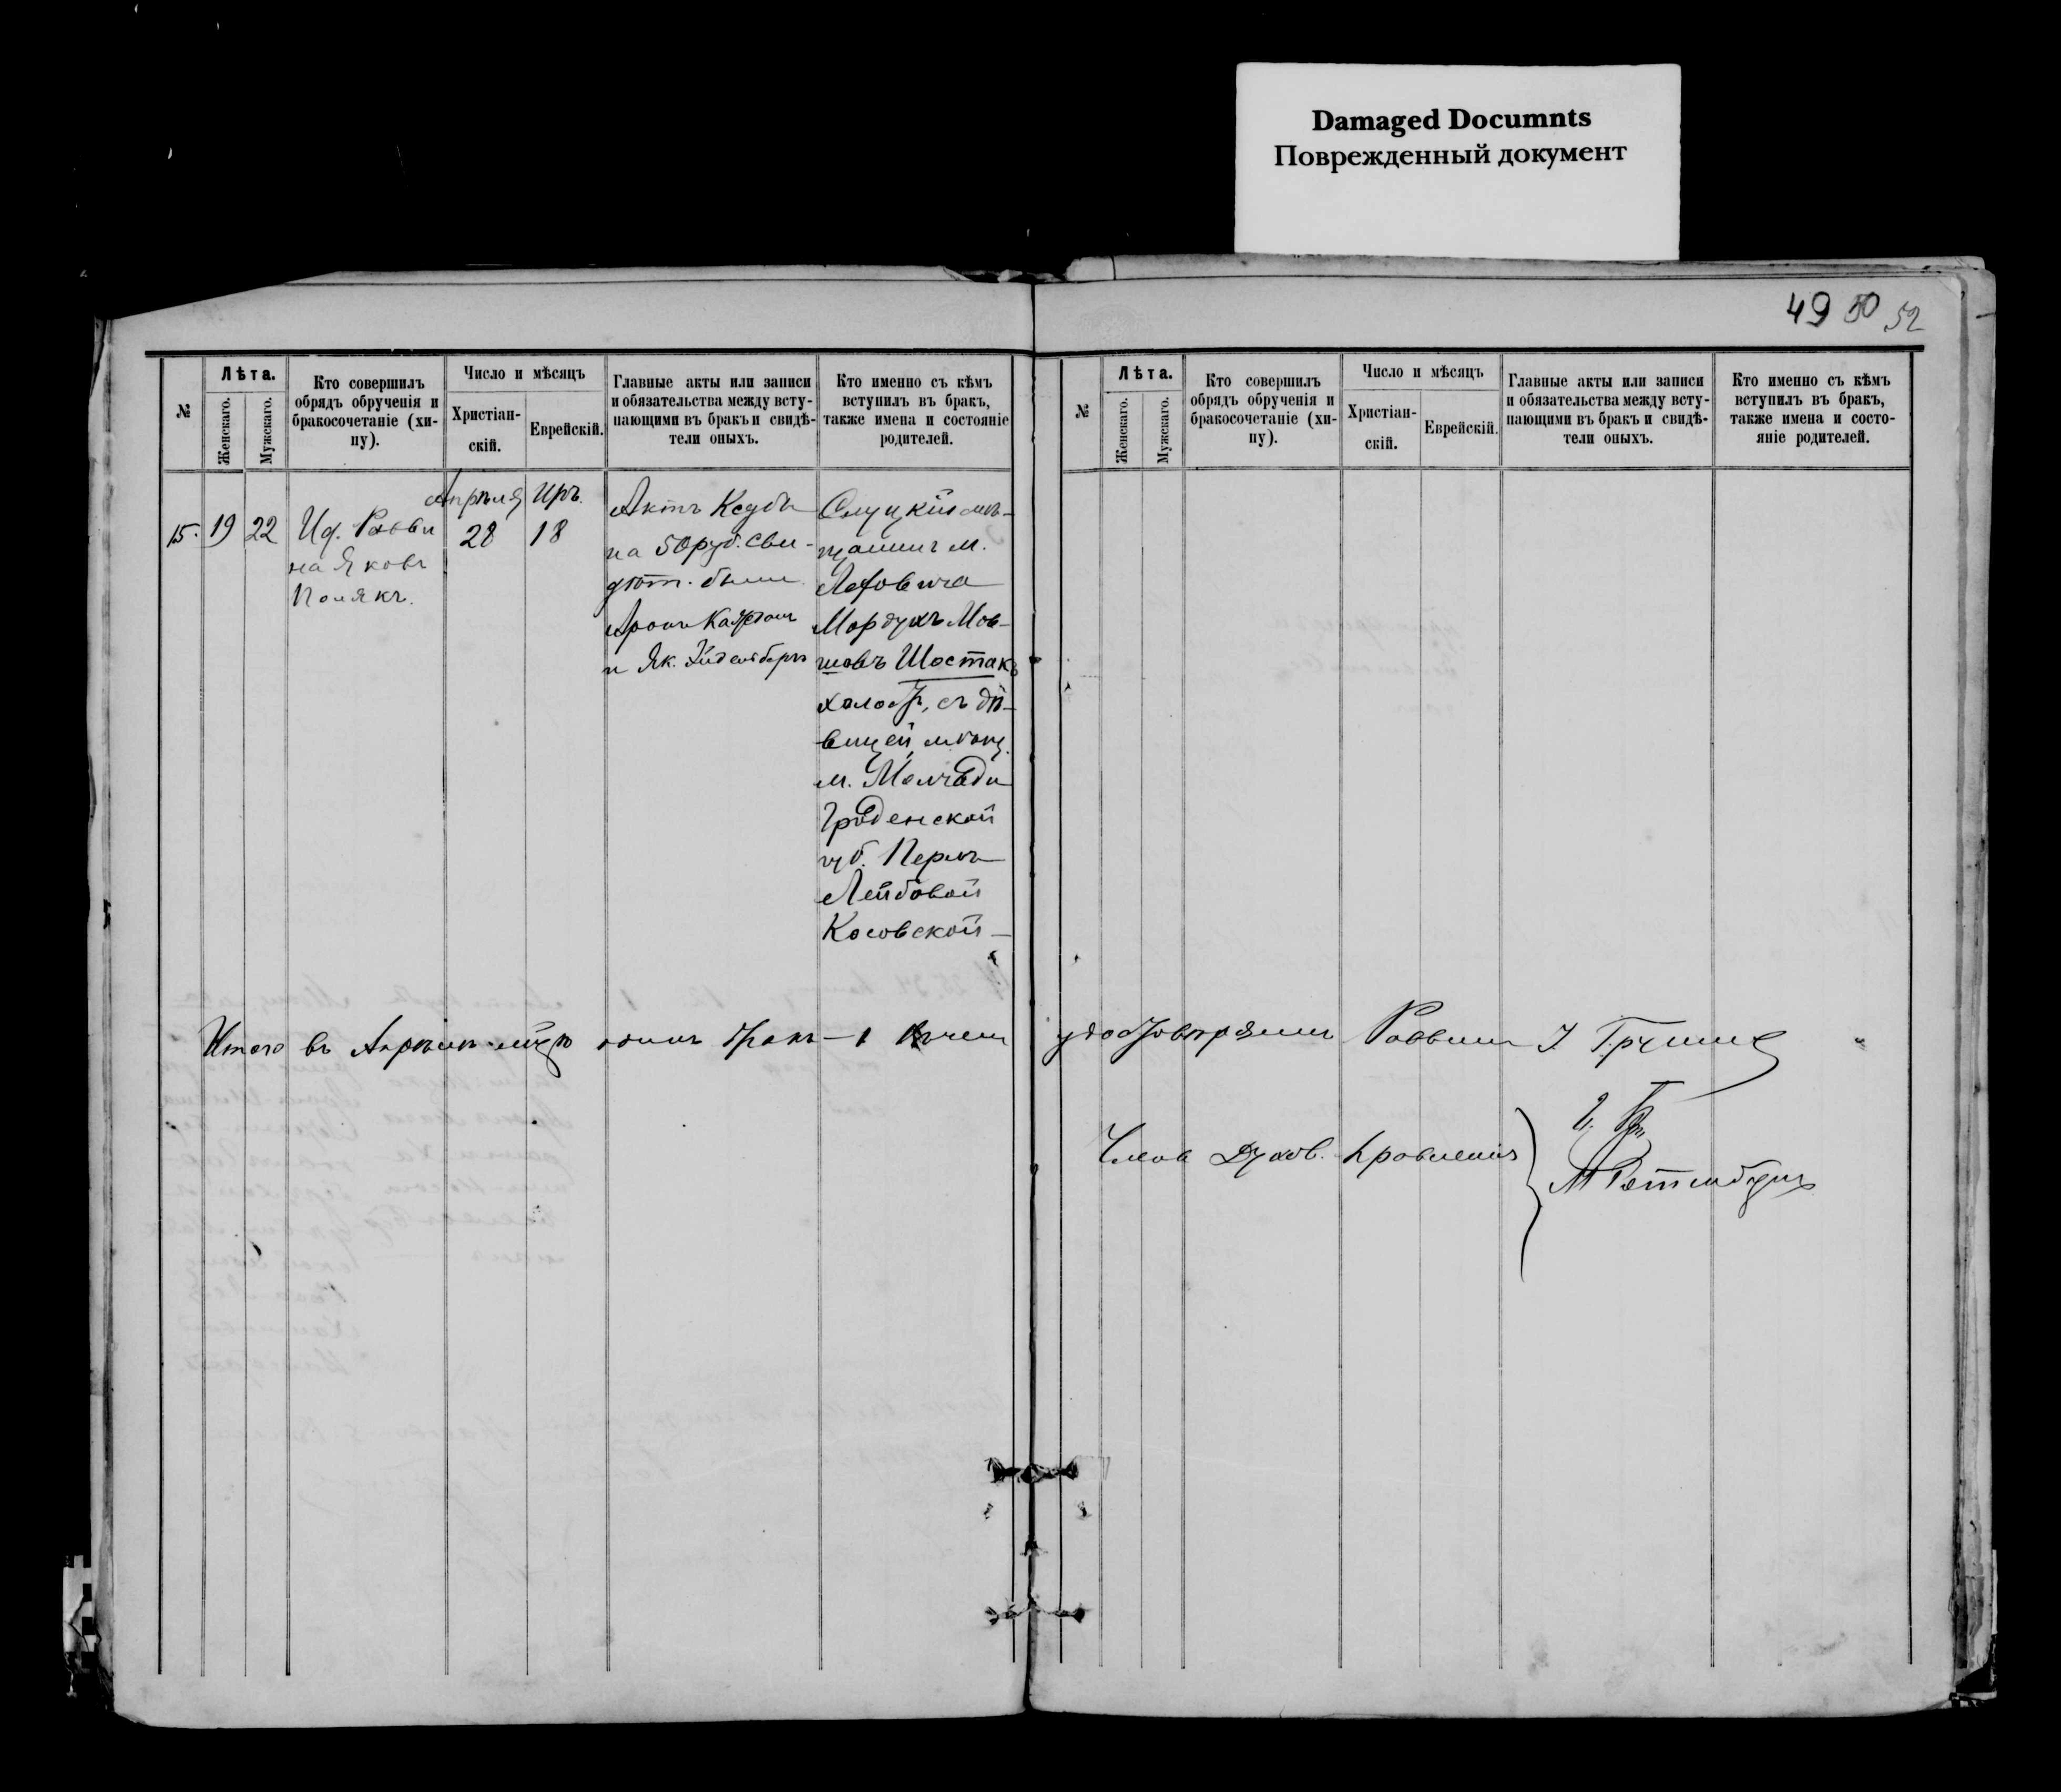 Damaged Documnts
Поврежденный документ
49 50 52
№
Лѣта.
Женскаго.
Мужскаго.
Кто совершилъ
обрядъ обрученія и
бракосочетаніе (хи-
пу).
Число и мѣсяцъ
Христіан-
скій.
Еврейскій.
Главные акты или записи
и обязательства между всту-
пающими въ бракъ и свидѣ-
тели оныхъ.
Кто именно съ кѣмъ
вступилъ въ бракъ,
также имена и состояніе
родителей.
15. 19 22
Раввина Яковъ
Полякъ.
Апрѣля
28
Иръ.
18
Актъ
на 50 руб. сви-
дѣт. были
и Як.
Слуцкій мѣ-
щанинъ м.
Ляховичъ
Мордухъ Мов-
шовъ Шостакъ
холост, съ дѣ-
вицей мѣщ.
м. Молчади
Гродненской
губ.
Лейбовой
Косовской
Итого въ Апрѣлѣ одинъ бракъ — 1
№
Лѣта.
Женскаго.
Мужскаго.
Кто совершилъ
обрядъ обрученія и
бракосочетаніе (хи-
пу).
Число и мѣсяцъ
Христіан-
скій.
Еврейскій.
Главные акты или записи
и обязательства между всту-
пающими въ бракъ и свидѣ-
тели оныхъ.
Кто именно съ кѣмъ
вступилъ въ бракъ,
также имена и состо-
яніе родителей.
Раввинъ
Члены Духов. Правленія